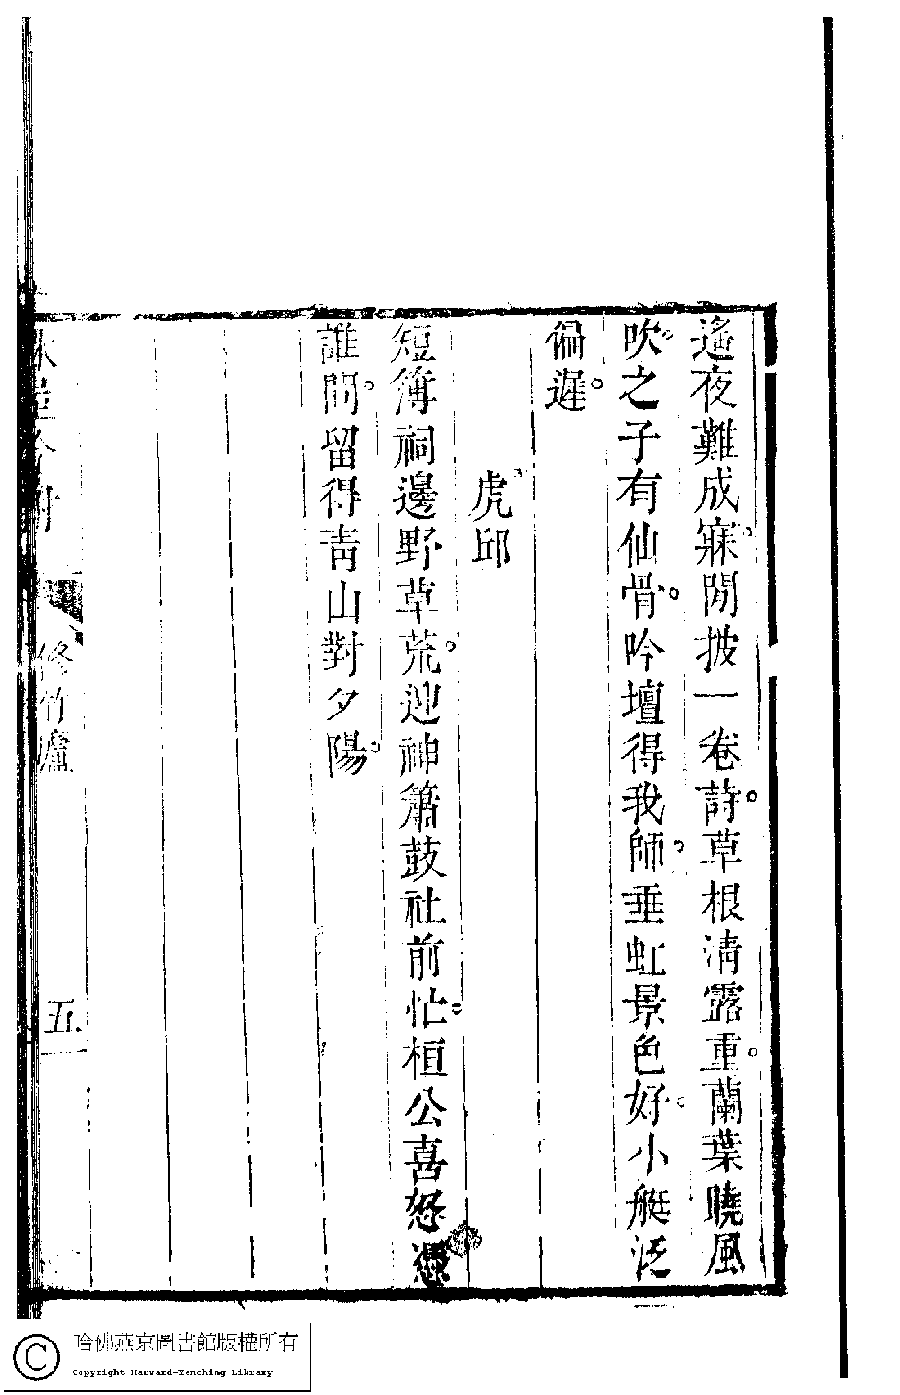 遙夜難成寐。閒披一卷詩。草根淸露重。蘭葉曉風
吹。之子有仙骨。吟壇得我師。垂虹景色好。小艇泛
偏遲。
虎邱
短簿祠邊野草荒。迎神簫鼓社前忙。桓公喜怒憑
誰問。留得靑山對夕陽。
修竹廬
五
哈佛燕京圖書館版權所有
Copyright Harvard-Yenching Library